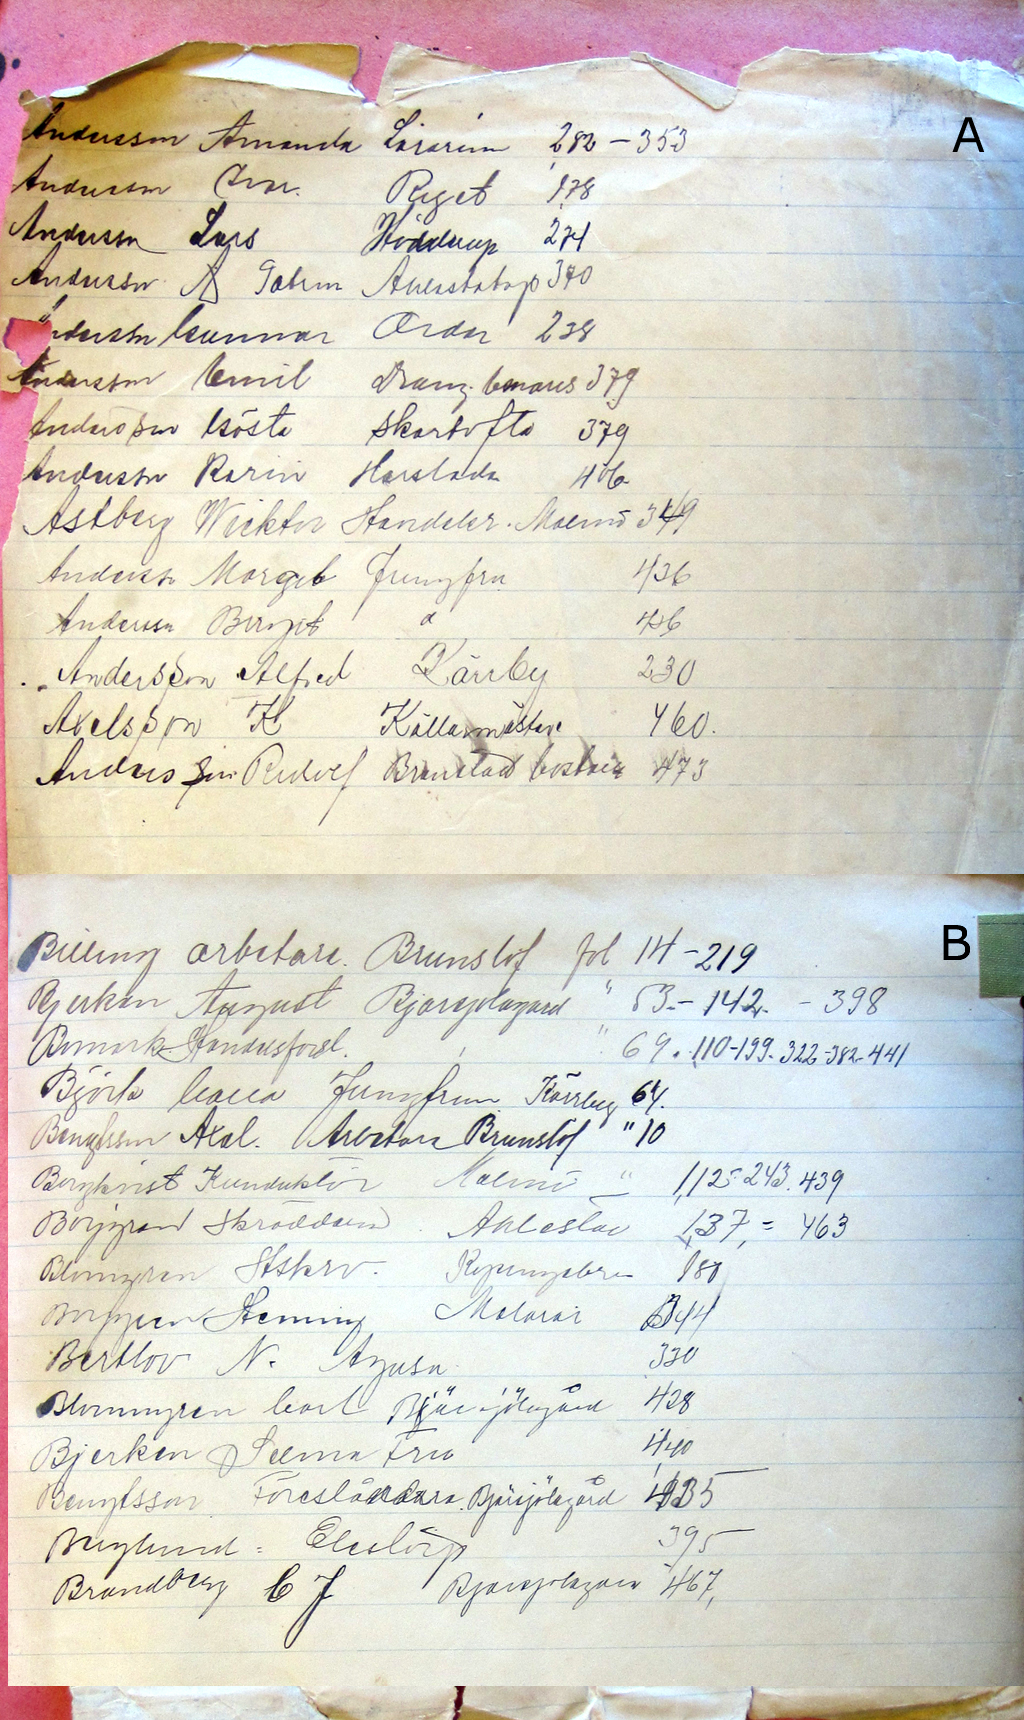 A
Andersson Amanda Lärarin 282 – 353
Andersson Ivar. Röget 178
Andersson Lars Höddrup 274
Andersson A Ahlestatorp 370
Andersson Gunnar Ordar 238
Andersson Emil 379
Andersson Gösta Skartofta 379
Andersson Karin Harslada 406
Astberg Wicktor Handelsr. Malmö 349
Anderss Margit Jungfru 436
Anderssn Birgit " 436
Andersson Alfred Kärrby 230
Axelsson K Källarmästare 460.
Andersson Rudolf 473
B
Billing arbetare. Brunslöf fol 14 – 219
Bjerken August Bjärsjölagård " 53 – 142 – 398
Bomark Handelsförest. " 69. 110-199. 322-382-441
Björk Jungfrun Kärrby 64.
Bengtsson Axel. Arbetare Brunslöf " 10
Bergkvist Kunduktör Malmö " 112 = 243. 439
Borjgren Skräddare Ahlestad 137, = 463
Blomgren 180
Borjgren Heming Målarär 344
Bertlov N. Agusa 330
Blommgren Carl Bjärsjölagård 428
Bjerken Selma Fru 440
Bengtsson Föreståndare. Bjärsjölagård 435
Berglund = Elestorp 395
Brandberg C J Bjärsjölagård 467,